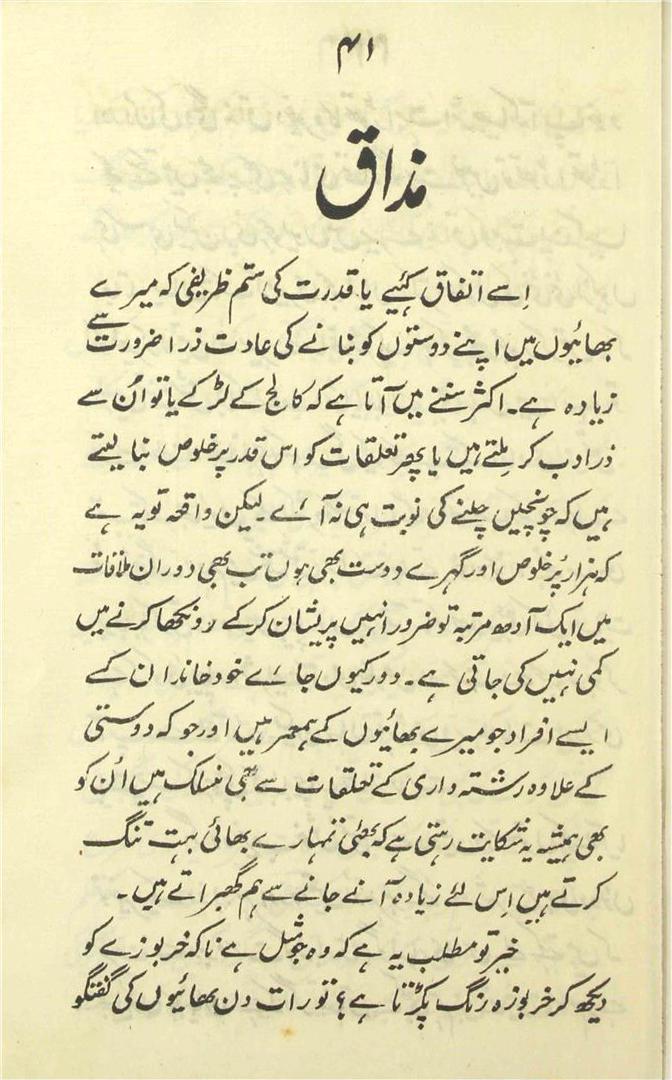 ۴۱
مذاق
اِسے اتفاق کہیے یا قدرت کی ستم ظریفی کہ میرے
بھائیوں میں اپنے دوستوں کو بنانے کی عادت ذرا ضرورت سے
زیادہ ہے۔ اکثر سننے میں آتا ہے کہ کالج کے لڑکے یا تو اُن سے
ذرا دب کر ملتے ہیں یا پھر تعلقات کو اس قدر پر خلوص بنا لیتے
ہیں کہ چونچیں چلنے کی نوبت ہی نہ آئے۔ لیکن واقعہ تو یہ ہے
کہ ہزار پُر خلوص اور گہرے دوست بھی ہوں تب بھی دوران ملاقات
میں ایک آدھ مرتبہ تو ضرور انہیں پریشان کر کے رونکھا کرنے میں
کمی نہیں کی جاتی ہے۔ دور کیوں جائے خود خاندان کے
ایسے افراد جو میرے بھائیوں کے ہمعمر ہیں اور جو کہ دوستی
کے علاوہ رشتہ داری کے تعلقات سے بھی منسلک ہیں اُن کو
بھی ہمیشہ یہ شکایت رہتی ہے کہ بھئی تمہارے بھائی بہت تنگ
کرتے ہیں اِس لئے زیادہ آنے جانے سے ہم گھبراتے ہیں۔
خیر تو مطلب یہ ہے کہ وہ جو مثل ہے نا کہ خربوزے کو
دیکھ کر خربوزہ رنگ پکڑتا ہے؟ تو رات دن بھائیوں کی گفتگو